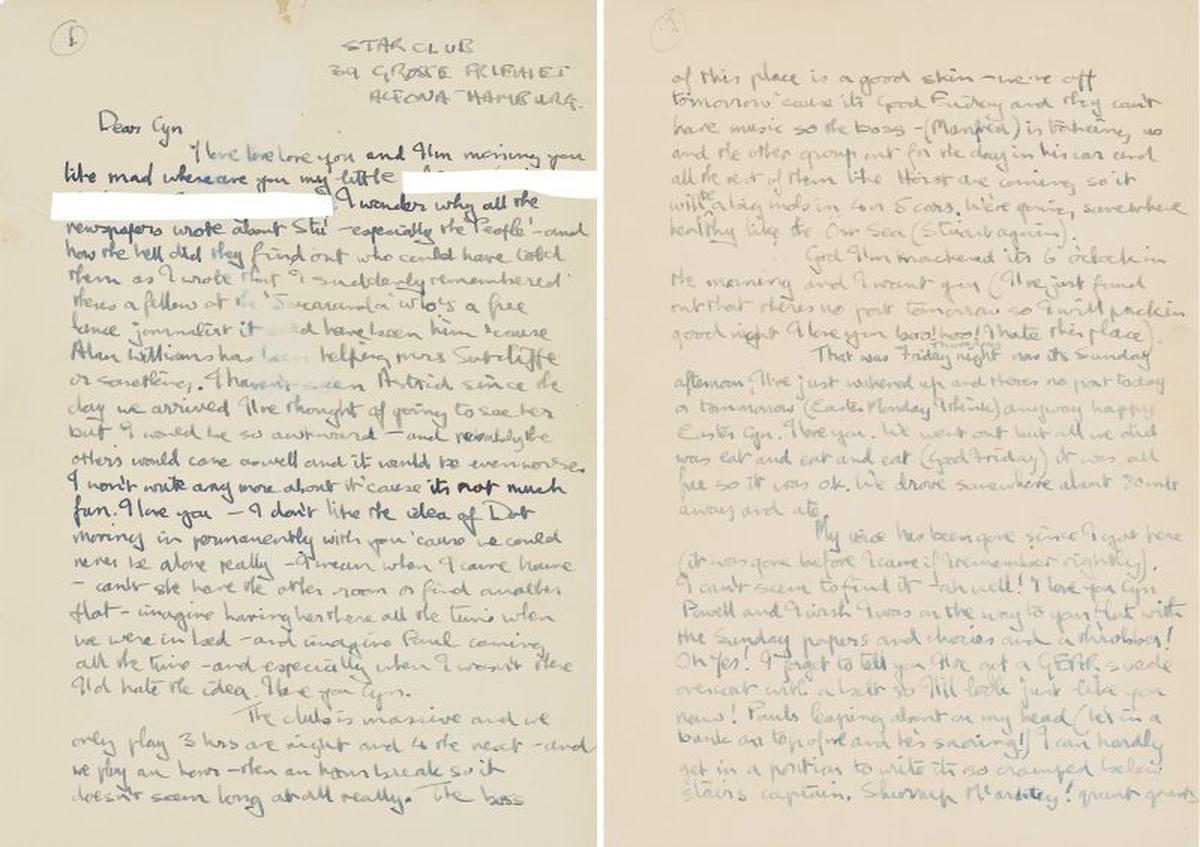 1
STAR CLUB
39 GROSSE FREIHEIT
ALTONA HAMBURG.
Dear Cyn
I love love love you and I'm missing you
like mad where are you my little
I wonder why all the
newspapers wrote about Stu - especially the 'People' - and
how the hell did they find out who could have told
them as I wrote that I suddenly remembered
theres a fellow at the 'Jacaranda' who's a free
lance journalist it d have been him 'cause
Alan Williams has helping mrs Sutcliffe
or something. I haven't seen Astrid since the
day we arrived I've thought of going to see her
but I would be so awkward - and probably the
others would come aswell and it would be even worse.
I won't write any more about it 'cause its not much
fun. I love you - I don't like the idea of Dot
moving in permanently with you 'cause we could
never be alone really - I mean when I come home
- can't she have the other room or find another
flat - imagine having her there all the time when
we were in bed - and imagine Paul coming
all the time - and especially when I wasn't there
I'd hate the idea. I love you Cyn.
The club is massive and we
only play 3 hrs one night and 4 the next - and
we play an hour - then an hours break so it
doesn't seem long at all really. The boss
of this place is a good skin - we're off
tomorrow 'cause its Good Friday and they can't
have music so the boss - (Manfred) is taking us
and the other group out for the day in his car and
all the rest of them like Horst are coming so it
will be a big mob in 4 or 5 cars. We're going somewhere
healthy like the Ost Sea (Stuart again).
God I'm knackered its 6 o'clock in
the morning and I want you (I've just found
out that there's no post tomorrow so I will pack in
good night I love you boo! hoo! I hate this place).
That was Friday night now its Sunday
afternoon, I've just wakened up and theres no post today
or tommorrow (Easter Monday I think) anyway happy
Easter Cyn. I love you. We went out but all we did
was eat and eat and eat (Good Friday) it was all
free so it was ok. We drove somewhere about 80 mls
away and ate.
My voice has been gone since I got here
(it was gone before I came if I remember rightly).
I can't seem to find it - ah well! I love you Cyn
Powell and I wish I was on the way to your flat with
the Sunday papers and chocies and a throbber!
Oh Yes! I forgot to tell you I've got a GEAR suede
overcoat with a belt so I'll look just like you
now! Pauls leaping about on my head (he's in a
bunk on top of me and he's snoring!) I can hardly
get in a position to write its so cramped below
stairs captain. Shurrup Mcartney! grunt grunt